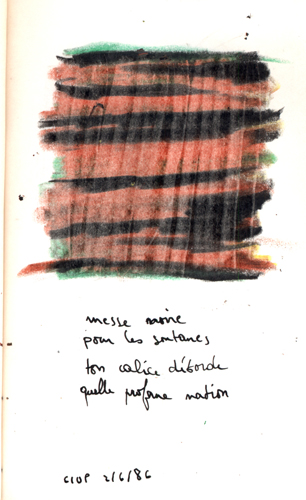 messe noire
pour les soutanes
ton calice déborde
quelle profane nation
2/6/86